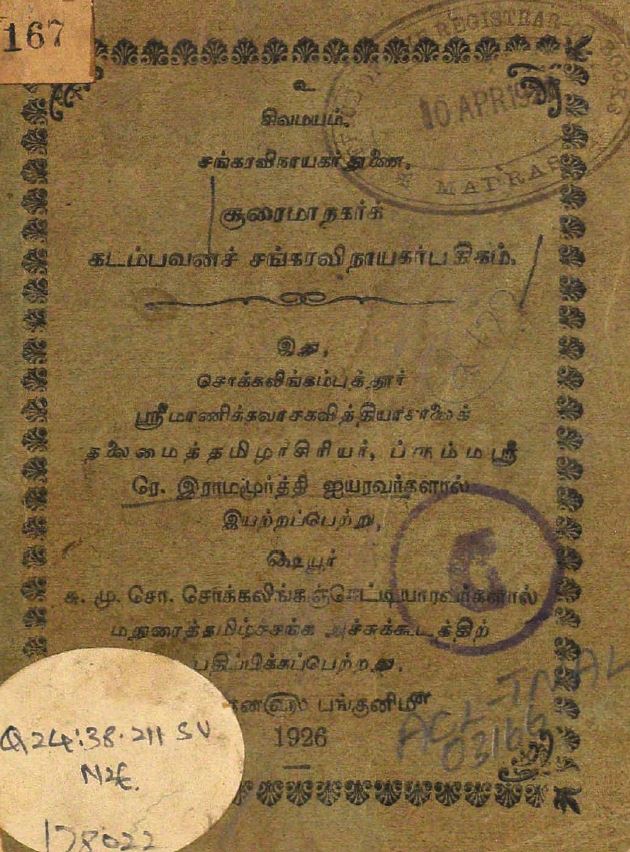 167
REGISTRAR
BOOKS
10 APR 19
MADRAS
உ
சிவமயம்.
சங்கரவிநாயகர் துணை.
சூரைமாநகர்க்
கடம்பவனச் சங்கரவிநாயகர்பதிகம்.
இது,
சொக்கலிங்கம்புத்தூர்
ஸ்ரீமாணிக்கவாசகவித்தியாசாலைத்
தலைமைத்தமிழாசிரியர், ப்ரம்மஸ்ரீ
ரே. இராமமூர்த்தி ஐயரவர்களால்
இயற்றப்பெற்று,
௸யூர்
சு. மு. சோ. சொக்கலிங்கஞ்செட்டியாரவர்களால்
மதுரைத்தமிழ்ச்சங்க அச்சுக்கூடத்திற்
பதிப்பிக்கப்பெற்றது.
பங்குனிமீ
1926
6
Q24:38·211 SV
N26
178022
ACL-TNAL
03166